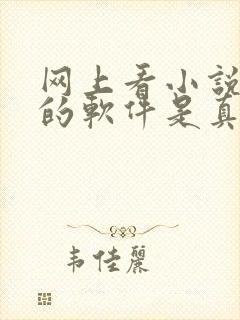 网上看小說
的軟件是真
韦佳麗